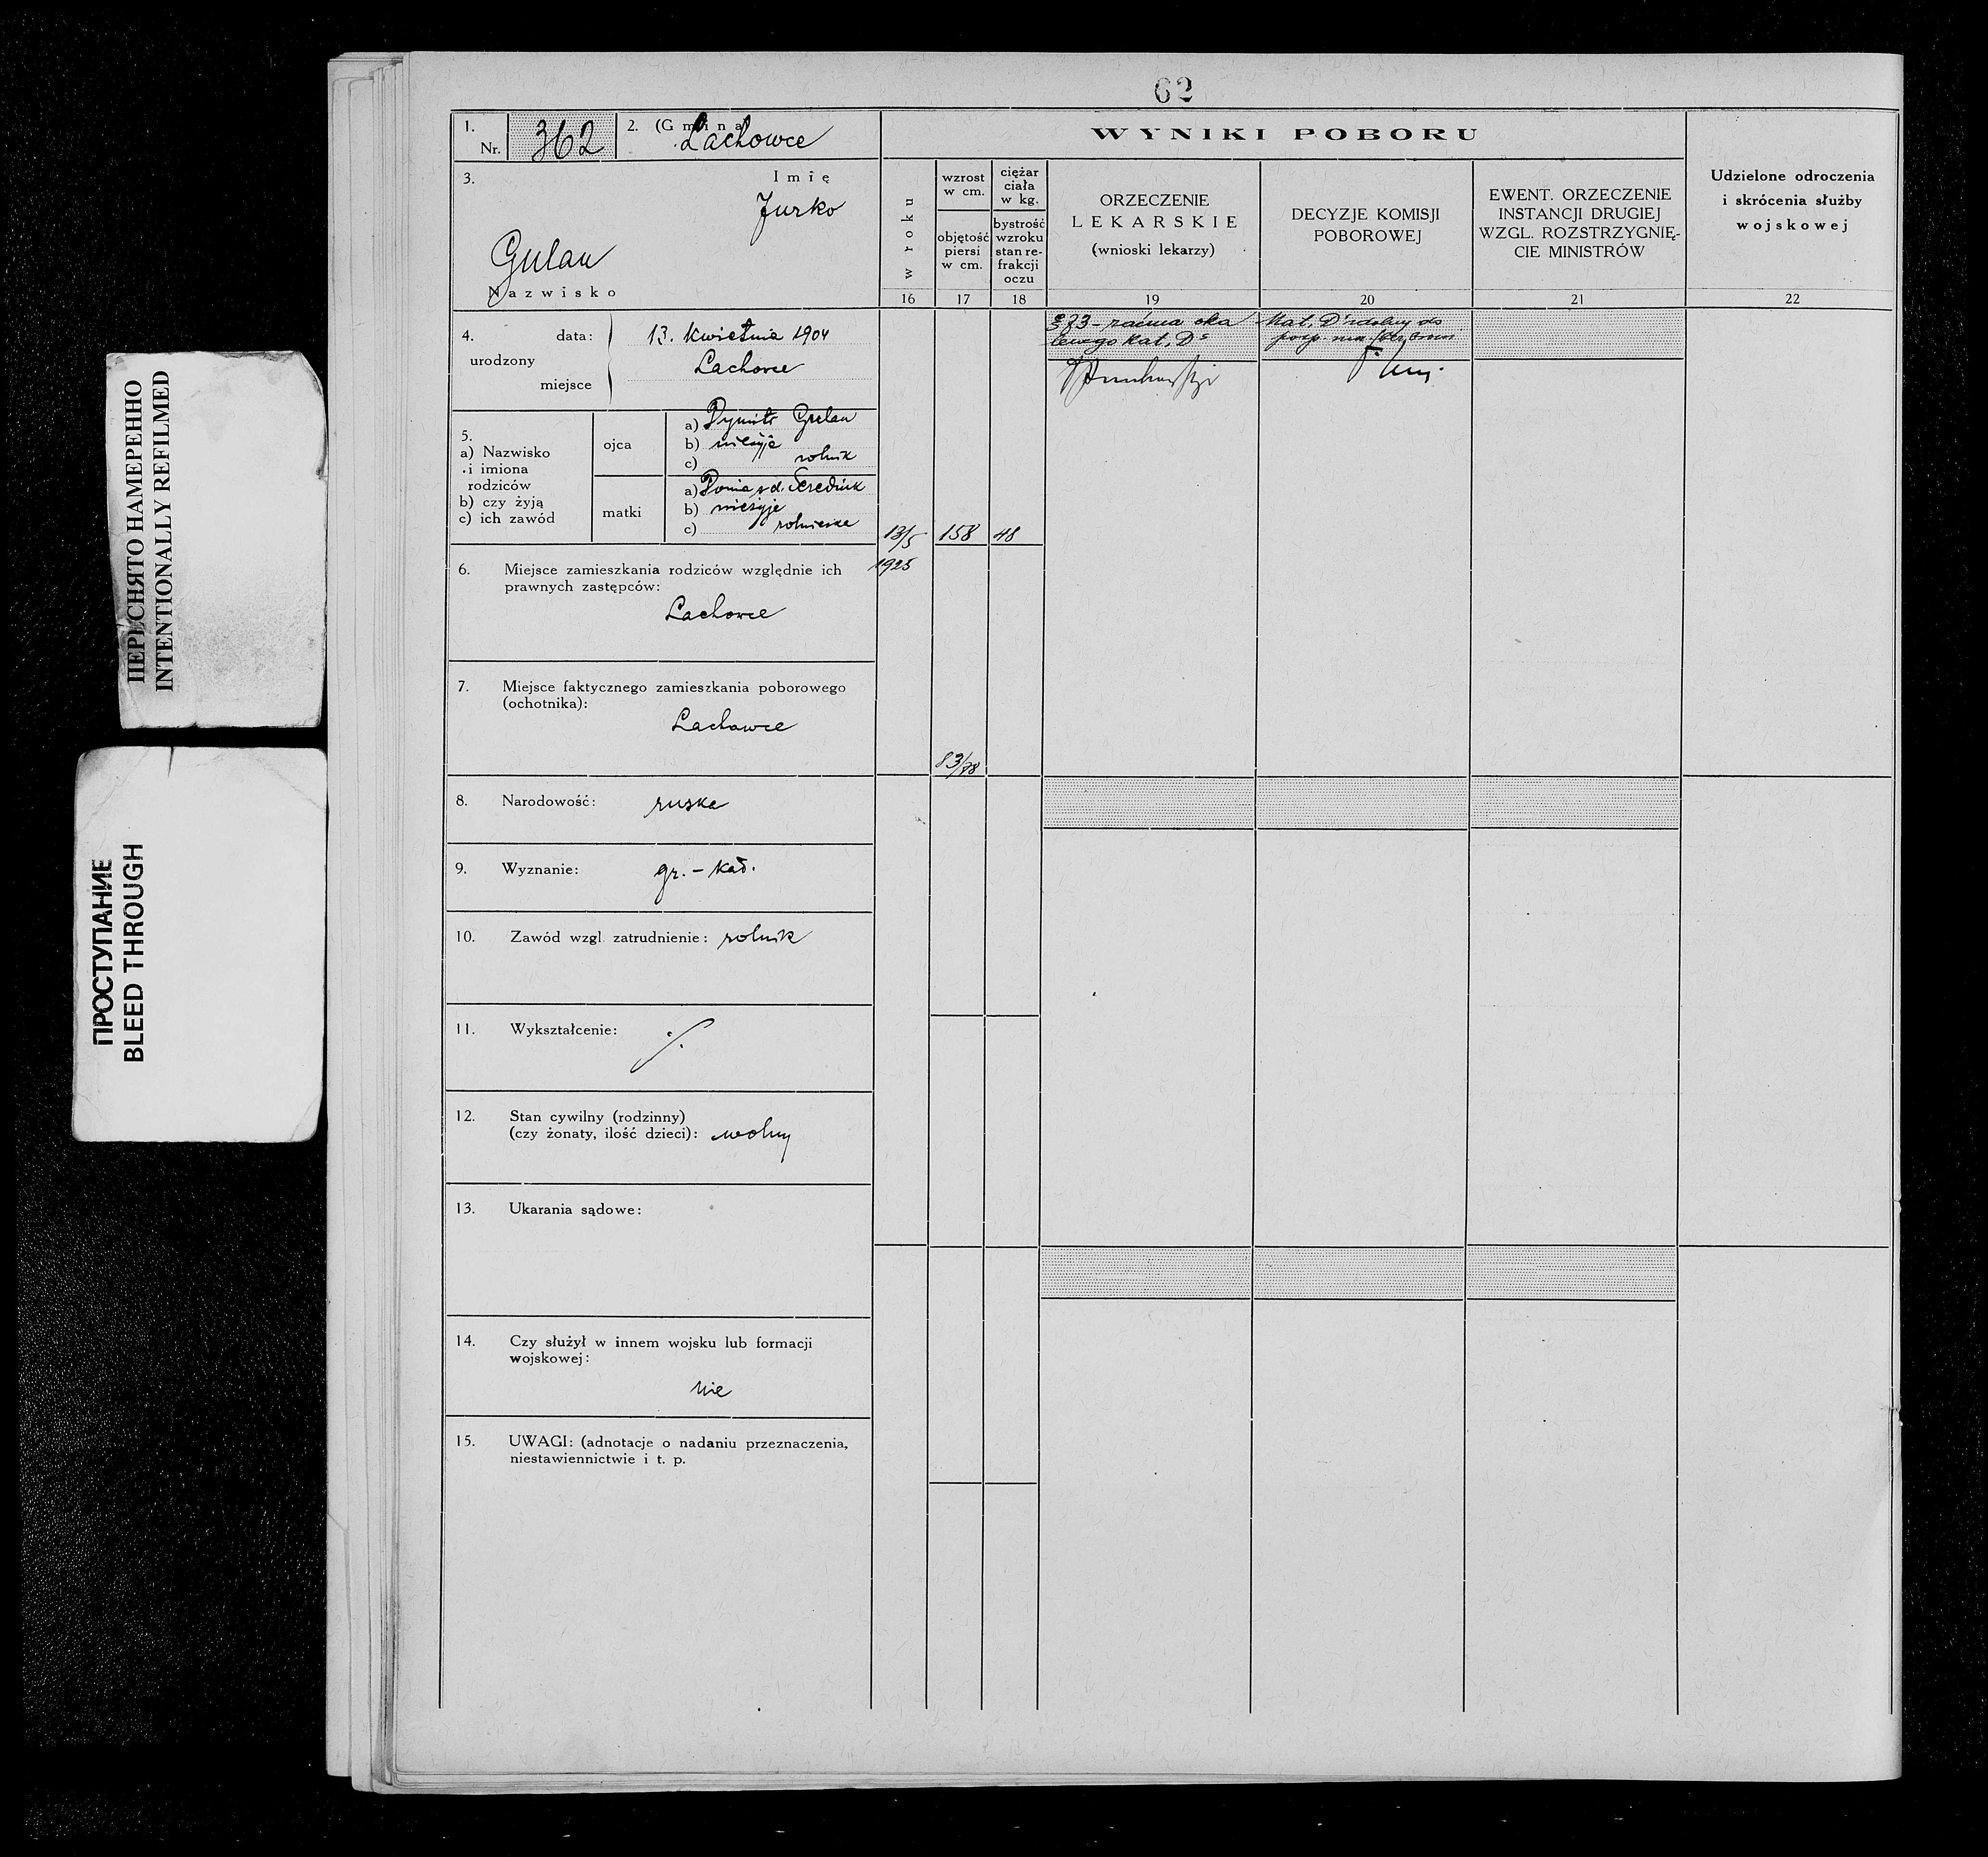 62
1. Nr. 362
2. (Gmina) Lachowce
3. Imię
Jurko
Gulan
Nazwisko
4. urodzony
data: 13. kwietnia 1904
miejsce Lachowce
5.
a) Nazwisko
i imiona
rodziców
b) czy żyją
c) ich zawód
ojca
a) Dymitr Gulan
b) nieżyje
c) rolnik
matki
a) Ponia z d. Serediuk
b) nieżyje
c) rolniczka
6. Miejsce zamieszkania rodziców względnie ich
prawnych zastępców:
Lachowce
7. Miejsce faktycznego zamieszkania poborowego
(ochotnika):
Lachowce
8. Narodowość: ruska
9. Wyznanie: gr. - kat.
10. Zawód wzgl. zatrudnienie: rolnik
11. Wykształcenie: ./.
12. Stan cywilny (rodzinny)
(czy żonaty, ilość dzieci): wolny
13. Ukarania sądowe:
14. Czy służył w innem wojsku lub formacji
wojskowej:
nie
15. UWAGI: (adnotacje o nadaniu przeznaczenia,
niestawiennictwie i t. p.
WYNIKI POBORU
w roku
16
wzrost
w cm.
objętość
piersi
w cm.
17
ciężar
ciała
w kg.
bystrość
wzroku
stan re-
frakcji
oczu
18
ORZECZENIE
LEKARSKIE
(wnioski lekarzy)
19
DECYZJE KOMISJI
POBOROWEJ
20
EWENT. ORZECZENIE
INSTANCJI DRUGIEJ
WZGL. ROZSTRZYGNIĘ-
CIE MINISTRÓW
21
Udzielone odroczenia
i skrócenia służby
wojskowej
22
13/5
1925
158
48
83/78
§ 83 - zaćma oka
lewego kat. D
Kat. D zdolny do
posp. rusz. bez broni
ПЕРЕСНЯТО НАМЕРЕННО
INTENTIONALLY REFILMED
ПРОСТУПАНИЕ
BLEED THROUGH